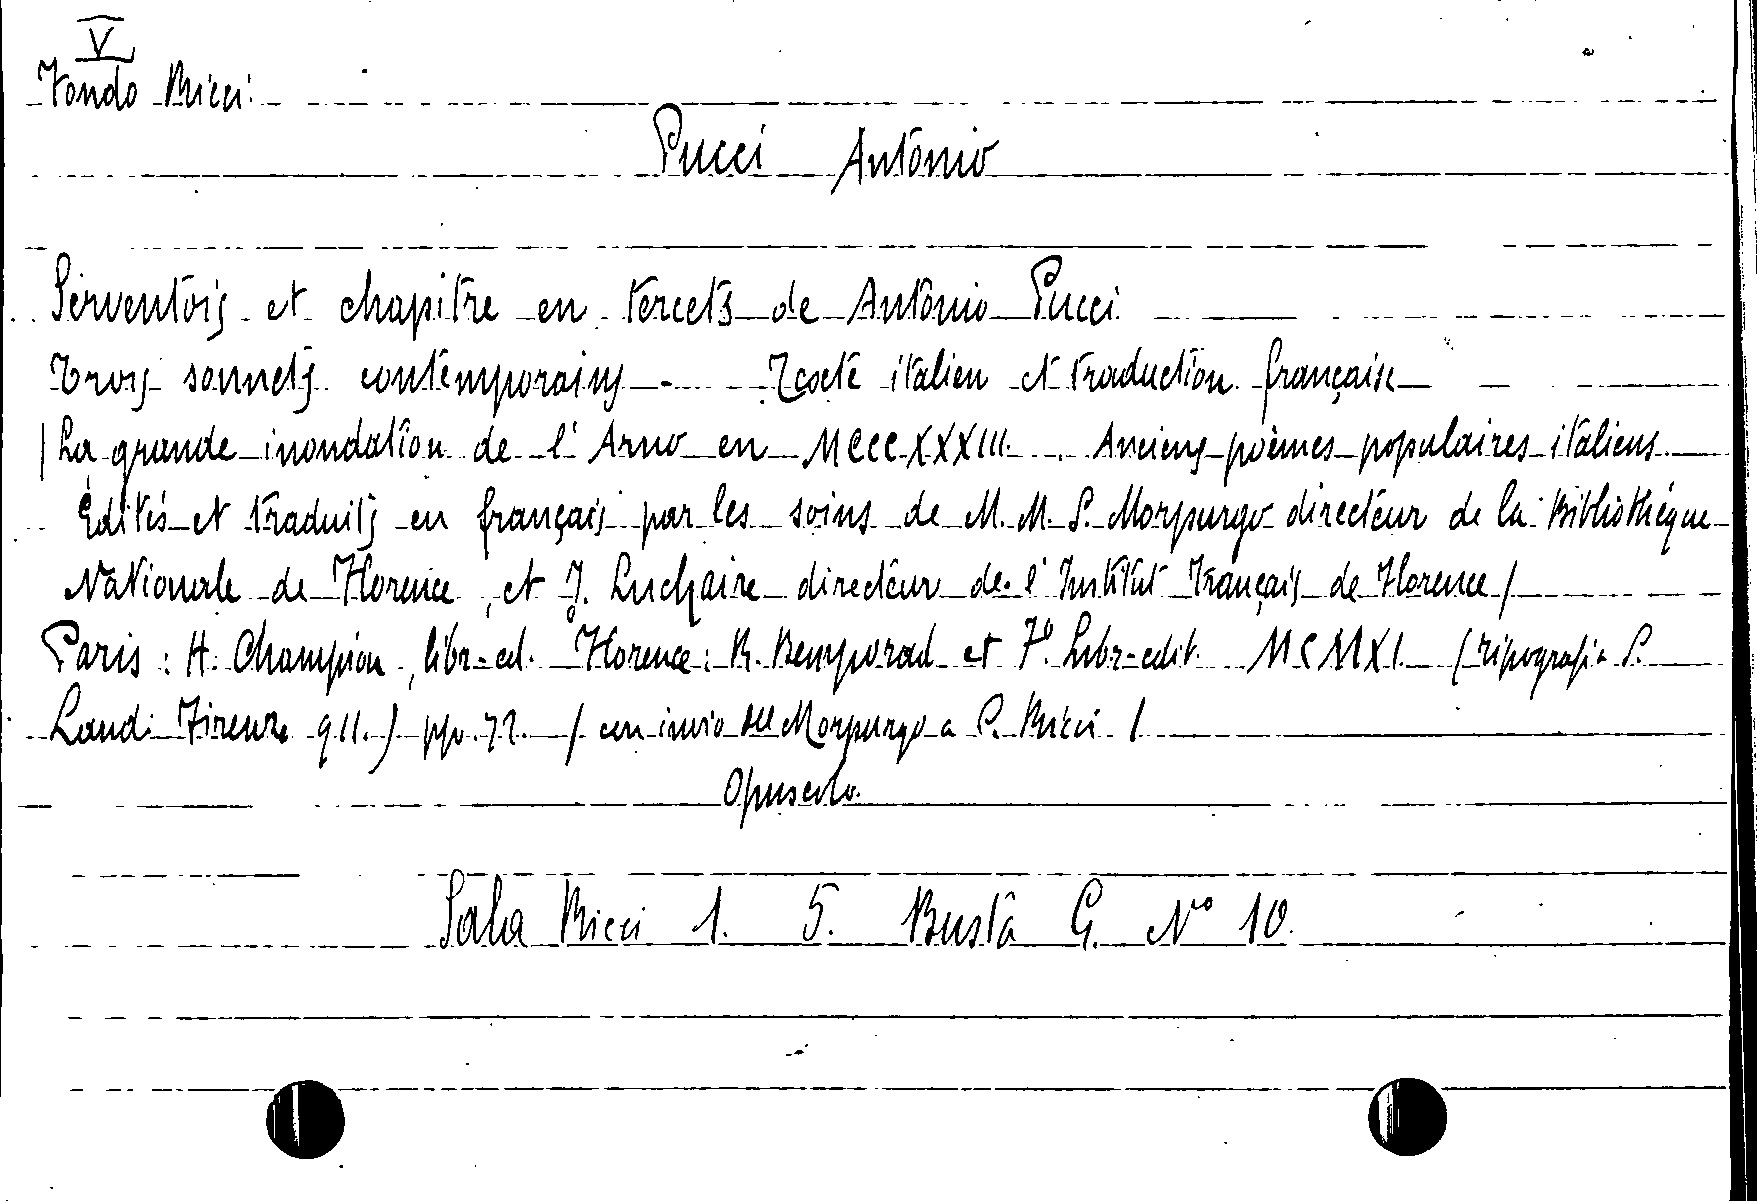 V
Fondo Ricci
Pucci Antonio
Serventois et chapitre en tercets de Antonio Pucci
Trois sonnets contemporains - Texte italien et traduction française
(La grande inondation de l'Arno en MCCCXXXIII. Anciens poèmes populaires italiens
Édités et traduits en français par les soins de M. M. S. Morpurgo directeur de la Bibliothèque
Nationale de Florence, et J. Luchaire directeur de l'Institut Français de Florence)
Paris: H. Champion, libr-ed. Florence: R. Bemporad et F. Libr-edit. MCMXI. (tipografia S.
Landi Firenze 911.) pp. 72. (con invio del Morpurgo a C. Ricci)
Opuscolo.
Sala Ricci 1. 5. Busta G. N° 10.